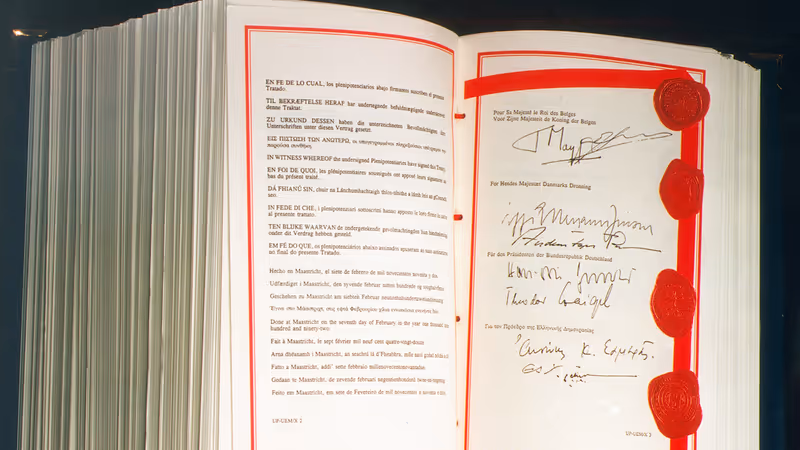 EN FE DE LO CUAL, los plenipotenciarios abajo firmantes suscriben el presente
Tratado.
TIL BEKRÆFTELSE HERAF har undertegnede befuldmægtigede underskrevet
denne Traktat.
ZU URKUND DESSEN haben die unterzeichneten Bevollmächtigten ihre
Unterschriften unter diesen Vertrag gesetzt.
ΕΙΣ ΠΙΣΤΩΣΗ ΤΩΝ ΑΝΩΤΕΡΩ, οι υπογεγραμμένοι πληρεξούσιοι υπέγραψαν την
παρούσα συνθήκη.
IN WITNESS WHEREOF the undersigned Plenipotentiaries have signed this Treaty.
EN FOI DE QUOI, les plénipotentiaires soussignés ont apposé leurs signatures au
bas du présent traité.
DÁ FHIANÚ SIN, chuir na Lánchumhachtaigh thíos-sínithe a lámh leis an gConradh
seo.
IN FEDE DI CHE, i plenipotenziari sottoscritti hanno apposto le loro firme in calce
al presente trattato.
TEN BLIJKE WAARVAN de ondergetekende gevolmachtigden hun handtekening
onder dit Verdrag hebben gesteld.
EM FÉ DO QUE, os plenipotenciários abaixo assinados apuseram as suas assinaturas
no final do presente Tratado.
Hecho en Maastricht, el siete de febrero de mil novecientos noventa y dos.
Udfærdiget i Maastricht, den syvende februar nitten hundrede og
Geschehen zu Maastricht am siebten Februar neunzehnhundertzweiundneunzig.
Έγινε στο Μάαστριχτ, στις εφτά Φεβρουαρίου χίλια εννιακόσια ενενήντα δύο.
Done at Maastricht on the seventh day of February in the year one thousand nine
hundred and ninety-two.
Fait à Maastricht, le sept février mil neuf cent quatre-vingt-douze.
Arna dhéanamh i Maastricht, an seachtú lá d'Fheabhra, míle naoi gcéad
Fatto a Maastricht, addì' sette febbraio millenovecentonovantadue.
Gedaan te Maastricht, de zevende februari negentienhonderd twee-en-negentig.
Feito em Maastricht, em sete de Fevereiro de mil novecentos e noventa e dois.
UP-UEM/X 2
Pour Sa Majesté le Roi des Belges
Voor Zijne Majesteit de Koning der Belgen
For Hendes Majestæt Danmarks Dronning
Für den Präsidenten der Bundesrepublik Deutschland
Theodor Waigel
Για τον Πρόεδρο της Ελληνικής Δημοκρατίας
UP-UEM/X 3